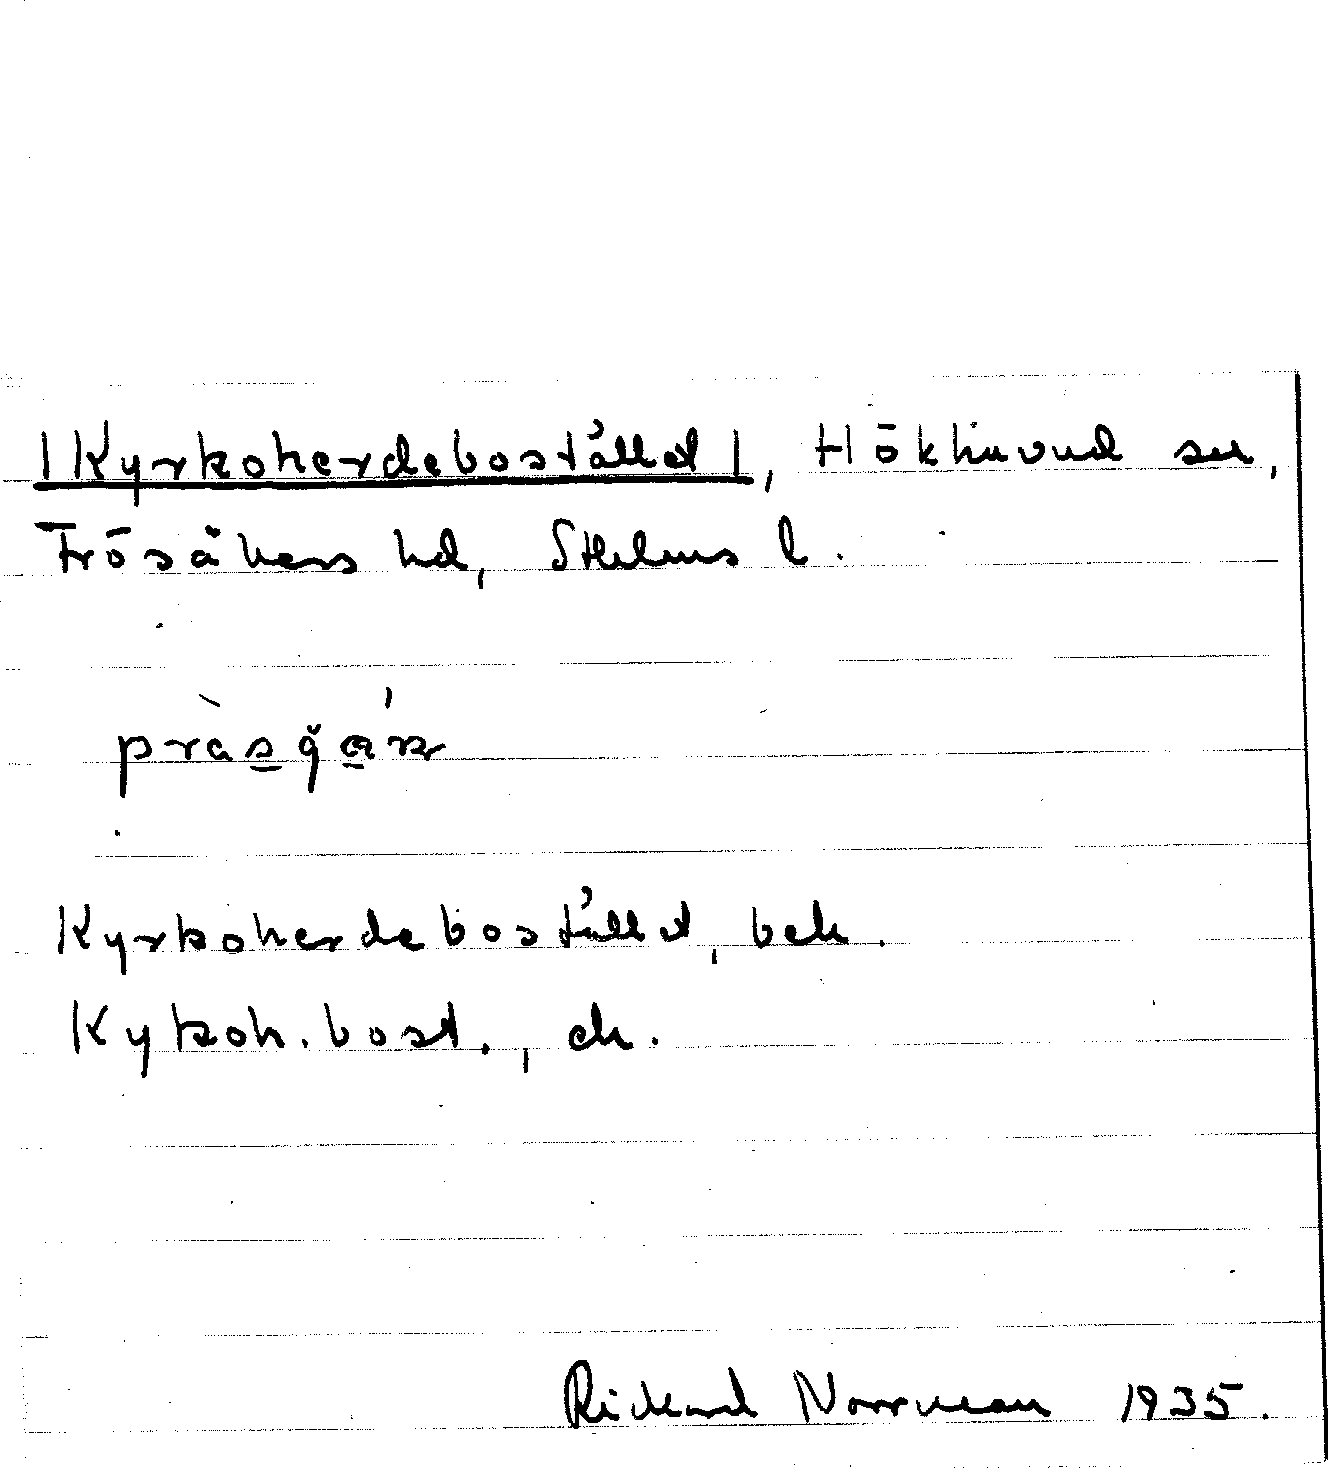 |Kyrkoherdebostället|, Hökhuvud sn,
Frösåkers hd, Sthlms l.
Kyrkoherdebostället, bek.
Kykoh. bost., ek.
Rickard Norrman 1935.